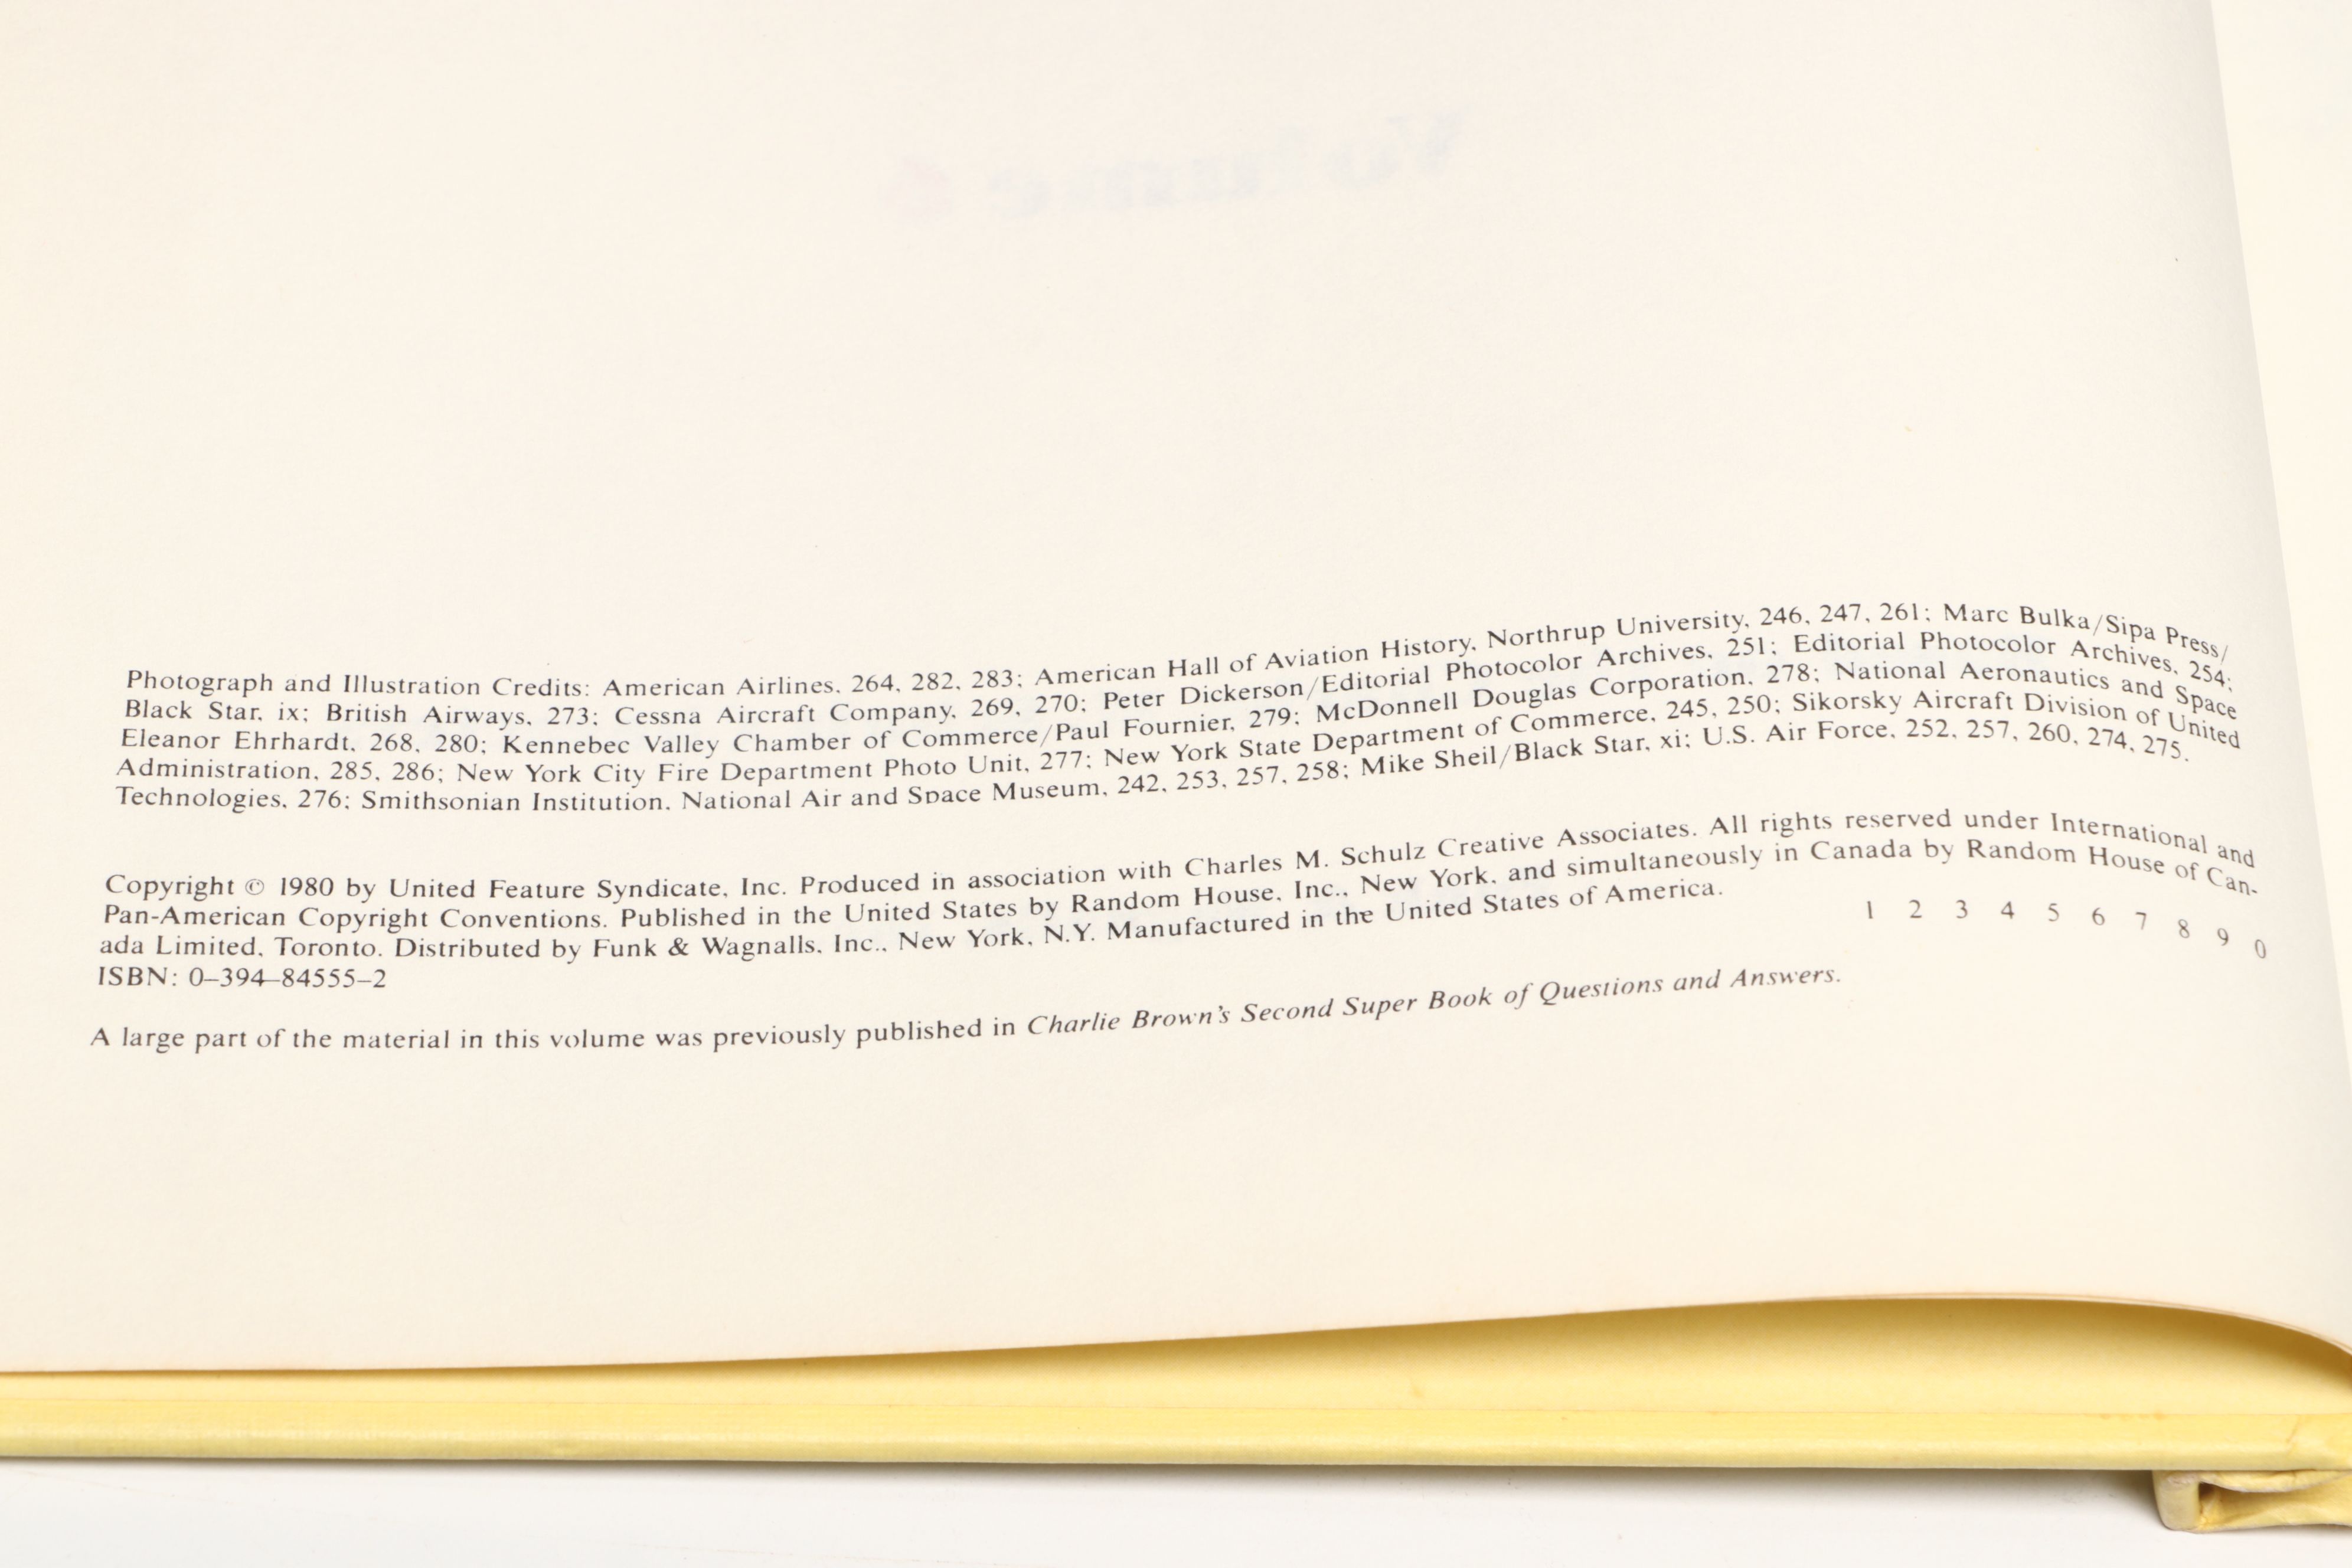 Photograph and Illustration Credits: American Airlines, 264, 282, 283; American Hall of Aviation History, Northrup University, 246, 247, 261; Marc Bulka/Sipa Press/
Black Star, ix; British Airways, 273; Cessna Aircraft Company, 269, 270; Peter Dickerson/Editorial Photocolor Archives, 251; Editorial Photocolor Archives, 254;
Eleanor Ehrhardt, 268, 280; Kennebec Valley Chamber of Commerce/Paul Fournier, 279; McDonnell Douglas Corporation, 278; National Aeronautics and Space
Administration, 285, 286; New York City Fire Department Photo Unit, 277; New York State Department of Commerce, 245, 250; Sikorsky Aircraft Division of United
Technologies, 276; Smithsonian Institution, National Air and Space Museum, 242, 253, 257, 258; Mike Sheil/Black Star, xi; U.S. Air Force, 252, 257, 260, 274, 275.
Copyright © 1980 by United Feature Syndicate, Inc. Produced in association with Charles M. Schulz Creative Associates. All rights reserved under International and
Pan-American Copyright Conventions. Published in the United States by Random House, Inc., New York, and simultaneously in Canada by Random House of Can-
ada Limited, Toronto. Distributed by Funk & Wagnalls, Inc., New York, N.Y. Manufactured in the United States of America.
ISBN: 0–394–84555–2 1 2 3 4 5 6 7 8 9 0
A large part of the material in this volume was previously published in Charlie Brown's Second Super Book of Questions and Answers.